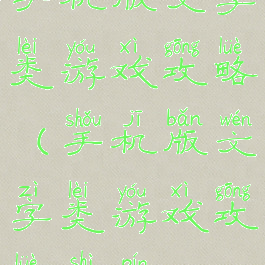 lèi yóu xì gōng lüè
类游戏攻略
shǒu jī bǎn wén
(手机版文
zì lèi yóu xì gōng
字类游戏攻
lüè shì pín